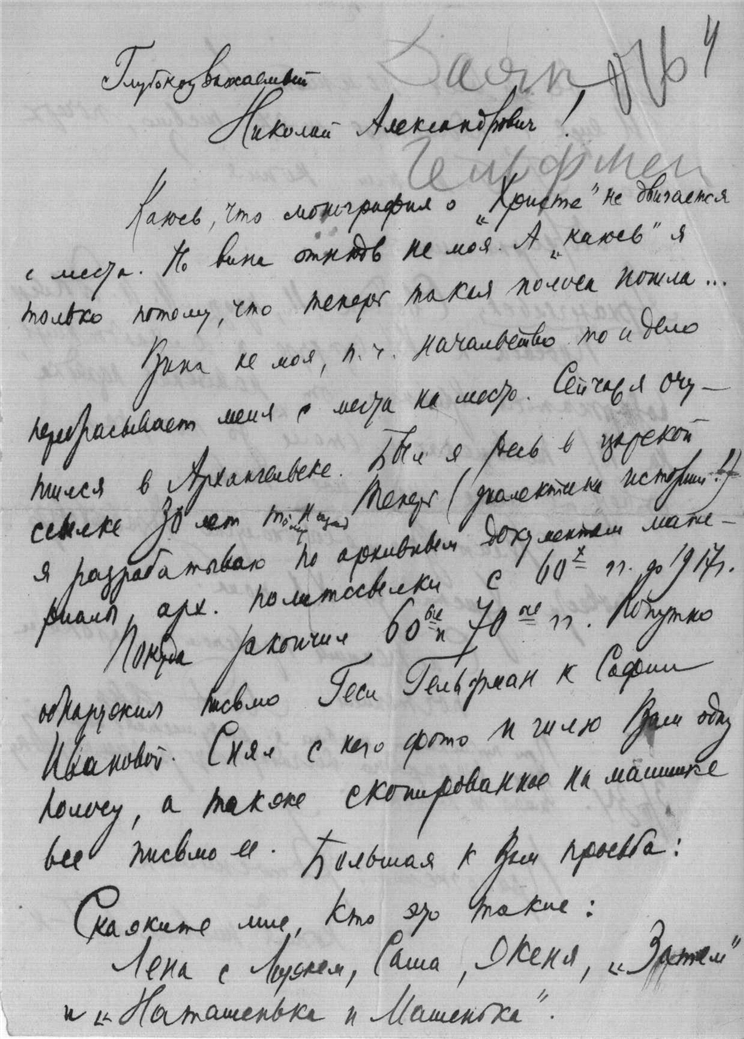 4
Глубокоуважаемый
Николай Александрович!
Каюсь, что монография о „Христе" не двигается
с места. Но вина отнюдь не моя. А „каюсь" я
только потому, что теперь такая полоса пошла...
Вина не моя, п.ч. начальство то и дело
перебрасывает меня с места на место. Сейчас я очу-
тился в Архангельске. Был я здесь в царской
ссылке 30 лет тому назад. Теперь (диалектика истории!)
я разрабатываю по архивным документам мате-
риалы арх. политссылки с 60х гг. до 1917г.
Покуда закончил 60ые и 70ые гг. Попутно
обнаружил письмо Геси Гельфман к Софии
Ивановой. Снял с него фото и шлю Вам одну
полосу, а также скопированное на машинке
все письмо ее. Большая к Вам просьба:
Скажите мне, кто это такие:
Лена с мужем, Саша, Женя, „Зятем"
и „Наташенька и Машенька".